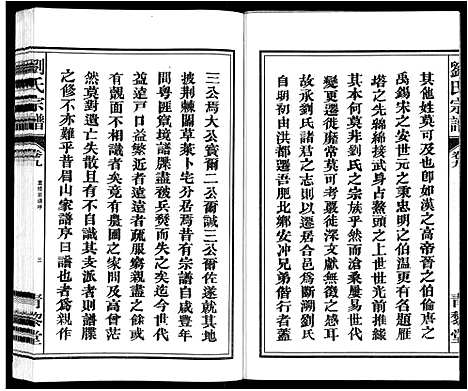 劉氏宗譜
卷九
青藜堂
其他姓莫可及也夫如漢之高帝晉之伯倫唐之
禹錫宋之安世元之秉忠明之伯溫宣有名題雁
塔之先綿綿接武身占鰲頭之上世世繩繩而究
其本何莫非劉氏之宗族乎然而滄桑屢易我先
故承劉氏諸君之志則以遷居合邑爲斷溯劉氏
自明初由洪都遷吾肥北鄉安冲兄弟偕行者蓋
三公焉大公寅爾二公爾誠三公爾佐遂就其地
披荆棘闢草萊卜宅分居焉昔有宗譜自咸豐年
間粤匪竄境譜牒被兵發而失之迄今世代
益遠戶口益繁近者親遠者疏服窮親盡之餘或
有相見不相識者矣竟有晨國之之家問及高曾茫
然莫對遺亡失散且有不識其支派者則譜牒
之修不亦難乎昔眉山家譜序曰譜也者爲親作
劉氏宗譜
卷九
三
青藜堂